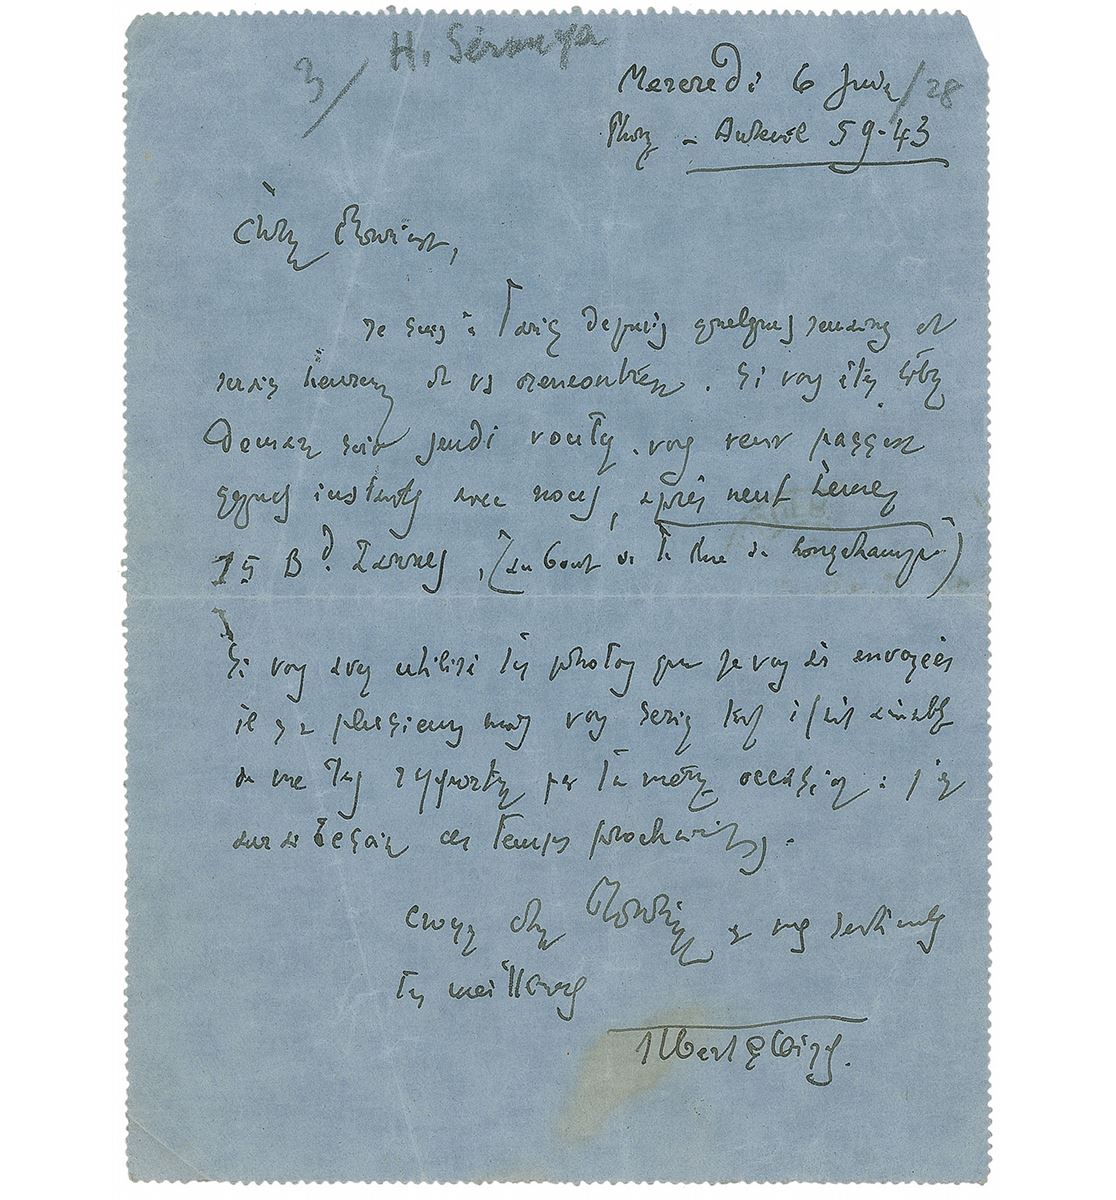 3/ H. Sérouya
Mercredi 6 Juin /28
Phone - Auteuil 59-43
Cher Monsieur,
Je suis à Paris depuis quelques semaines et
serais heureux de vs rencontrer. Si vous êtes libre
Demain soir jeudi voulez-vous venir passer
qques instants avec nous, après neuf heures
15 Bd. Lannes, (au bout de la Rue de Longchamps)
Si vous avez utilisé les photos que je vous ai envoyées
il y a plusieurs mois vous seriez tout à fait aimable
de me les rapporter par la même occasion : j'en
aurai besoin ces temps prochains.
Croyez cher Monsieur à mes sentiments
les meilleurs
Albert Gleizes.